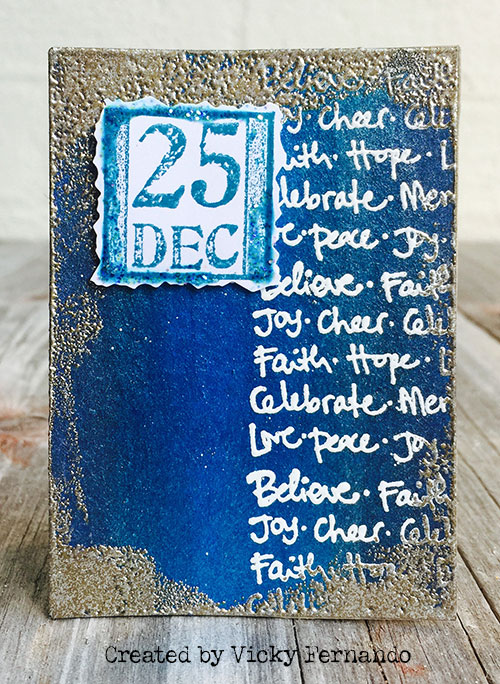 25
DEC
Believe · Faith
Joy · Cheer · Cele
Faith · Hope · L
Celebrate · Mer
Love · peace · Joy
Believe · Faith
Joy · Cheer · Cele
Faith · Hope · L
Celebrate · Mer
Love · peace · Joy
Believe · Faith
Joy · Cheer · Cele
Faith · Hope
Created by Vicky Fernando